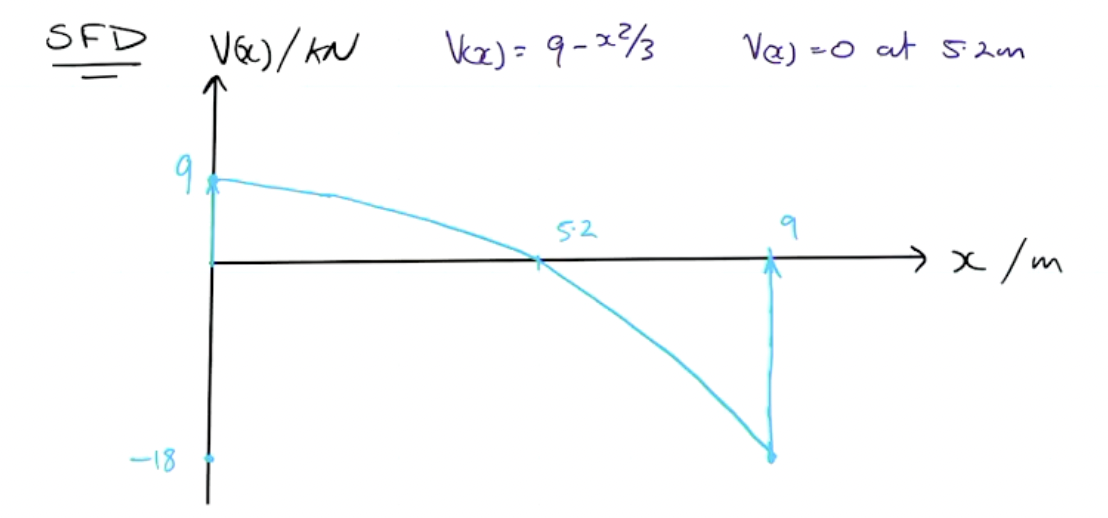 SFD V(x)/kN V(x) = 9 - x²/3 V(x) = 0 at 5.2m
9
5.2
9
x/m
-18